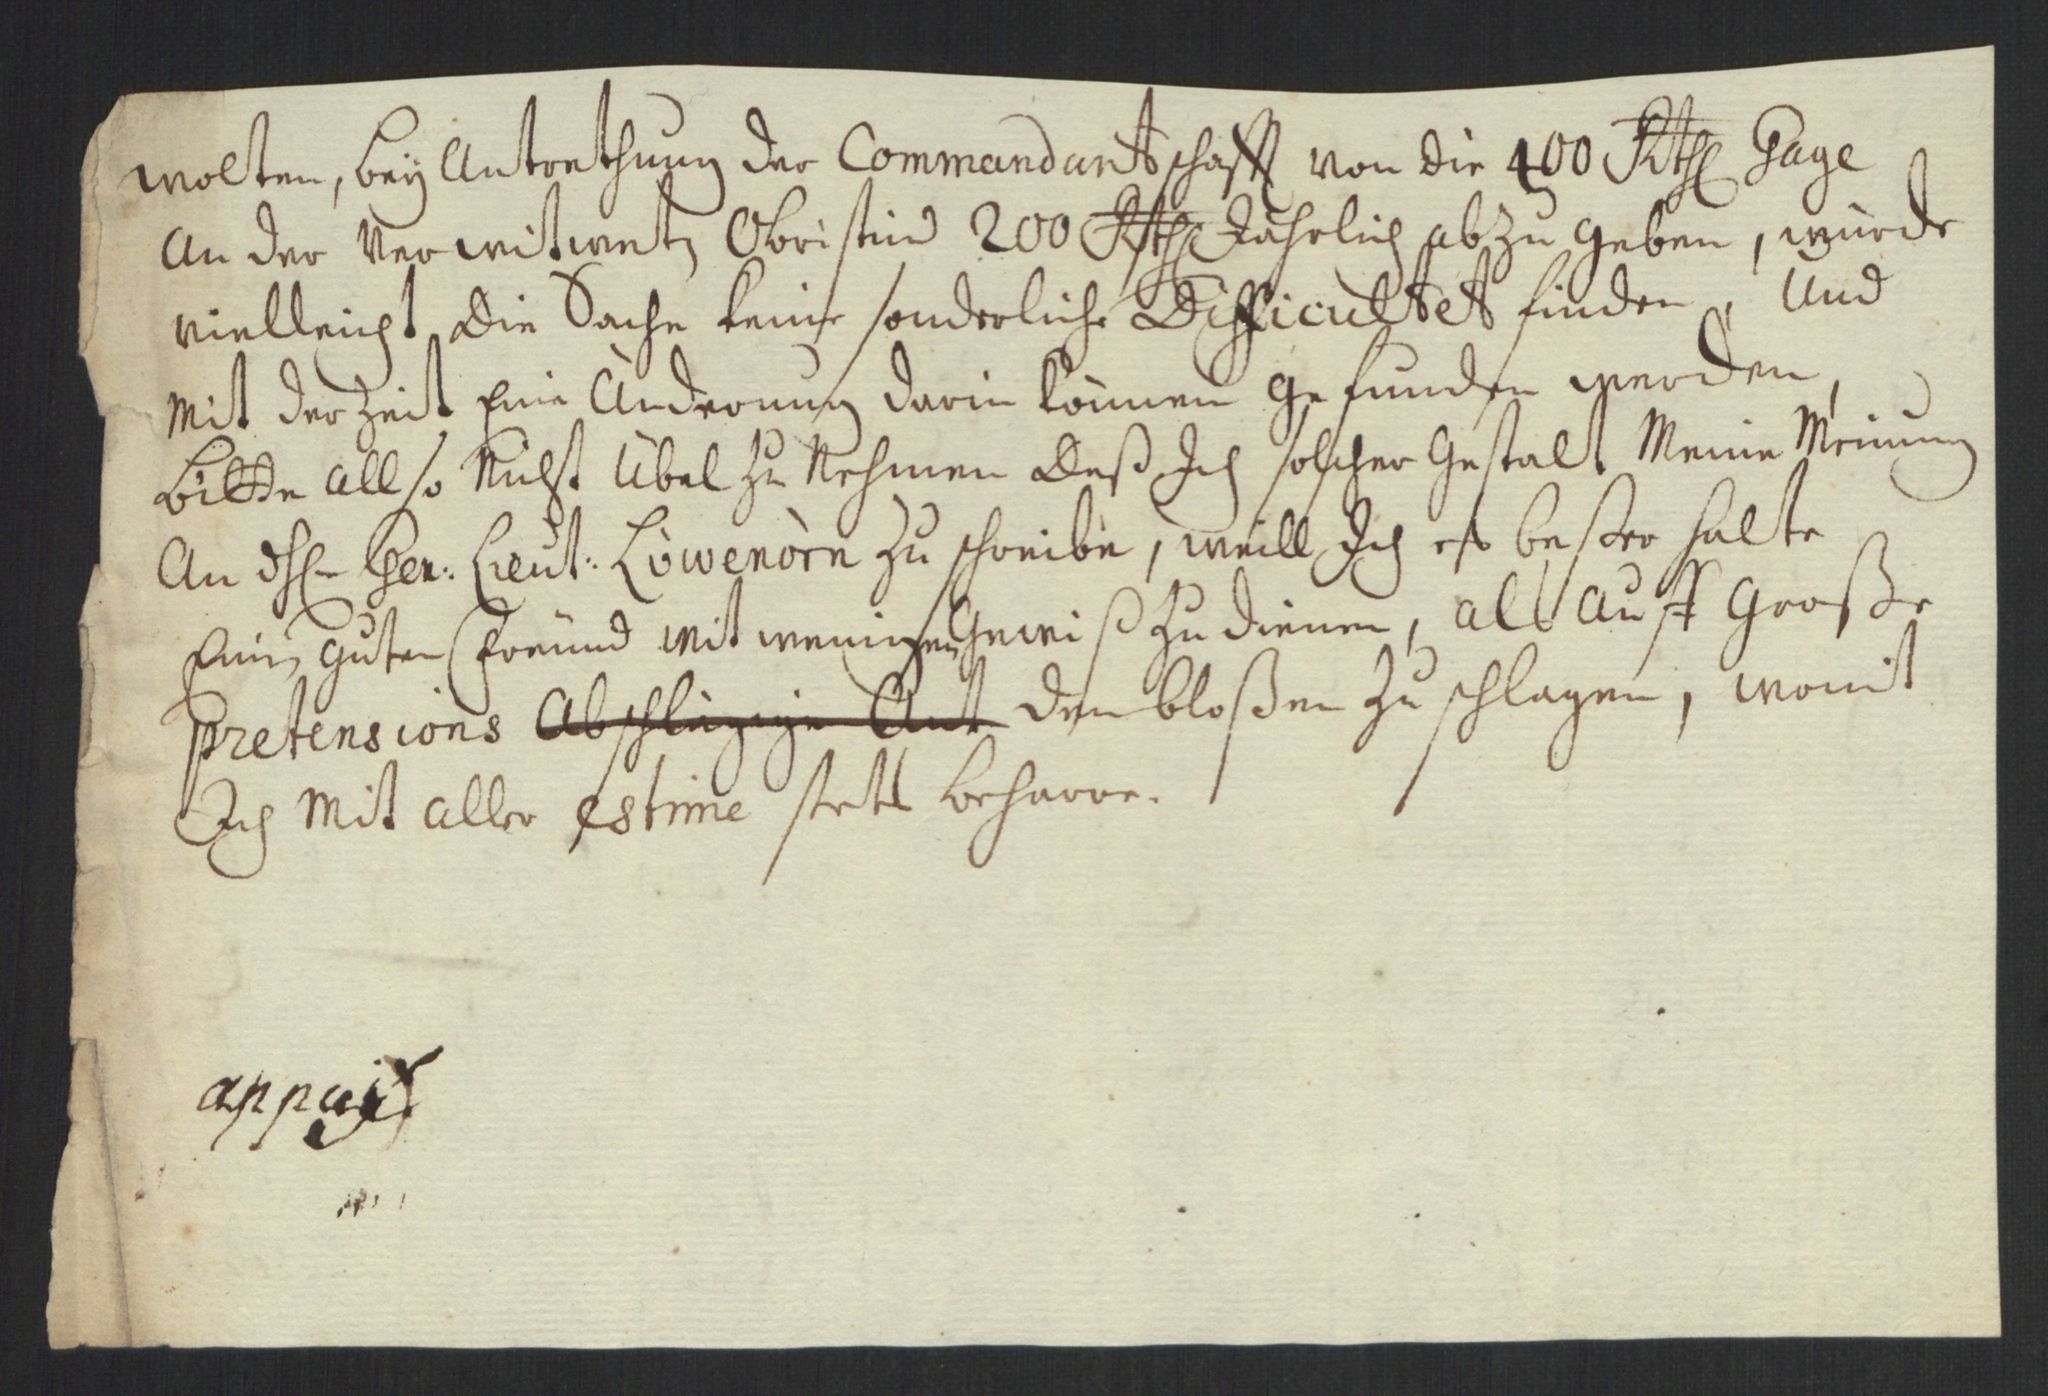 wolten, bey Antrethung der Commandantschafft von die 400 Rthl Gage
an der verwitwete Obristin 200 Rthl Jährlich abzugeben, würde
vielleicht die Sache keine sonderliche Difficultet finden, und
mit der Zeit eine Änderung darin können gefunden werden,
bitte allso nicht übel zu nehmen daß Ich solcher gestalt meine Meinung
an H. Gen: Lieut: Löwenörn zu schreibe, weill Ich es beßer halte
einen guten freund mit wenigen gewiß zu dienen, als auff große
pretensions Abschlägige Ant den bloßen zu schlagen, womit
Ich mit aller estime stets beharre.